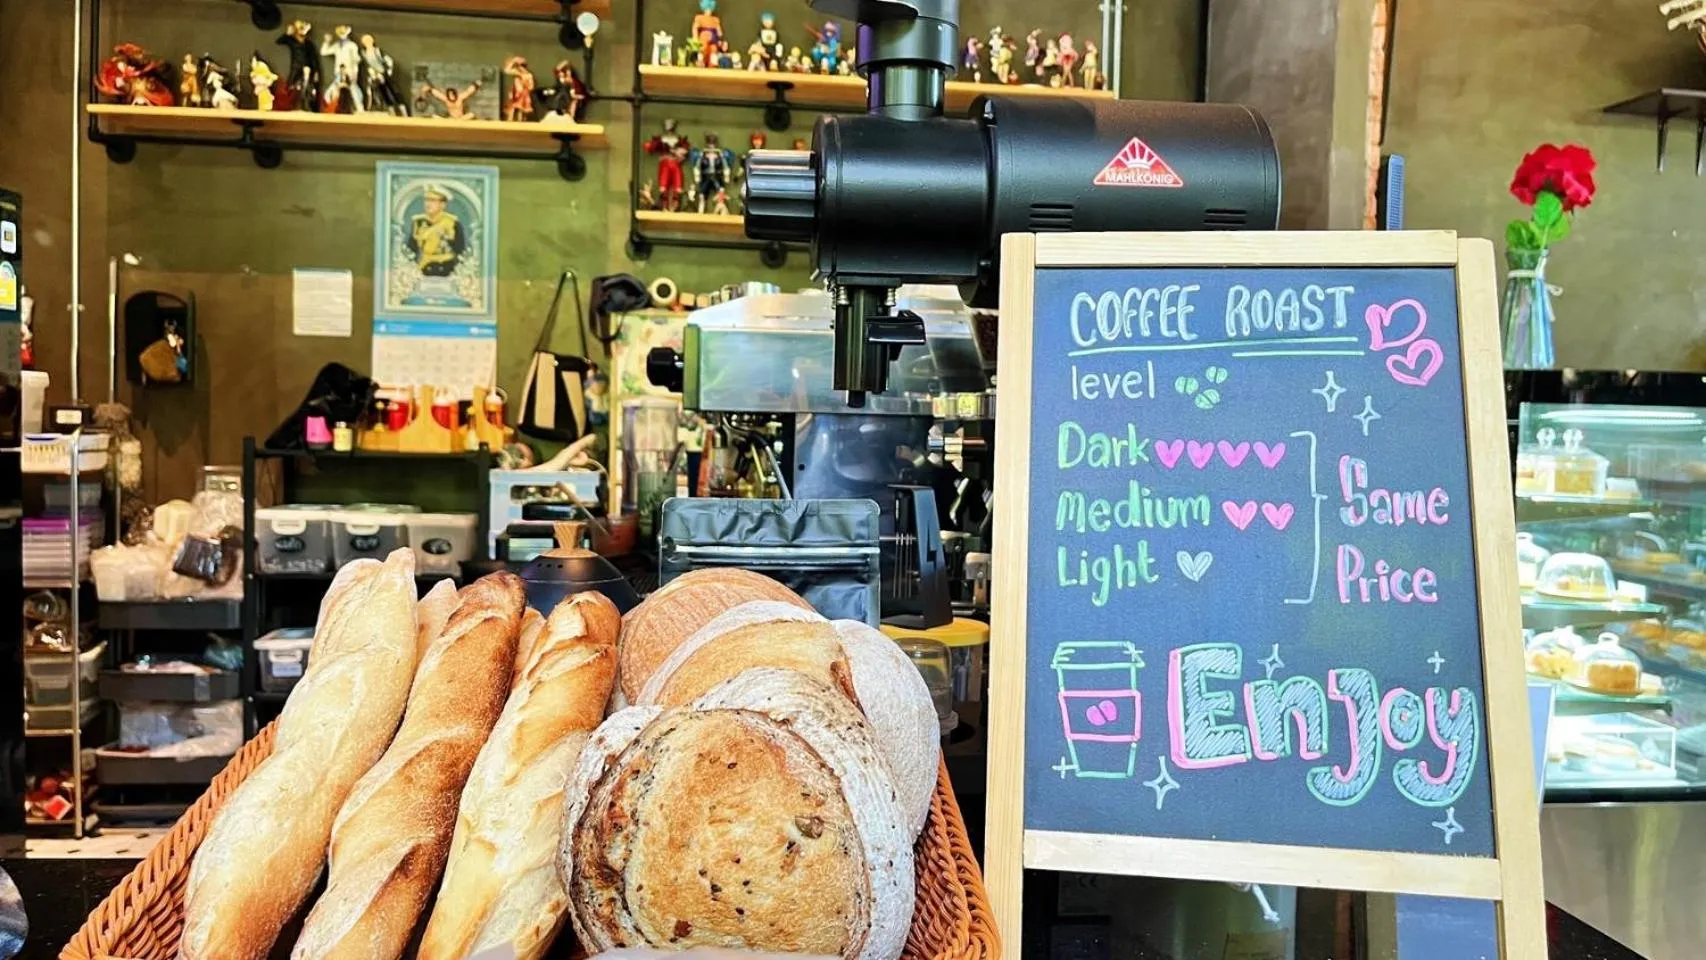 MAHLKÖNIG
COFFEE ROAST
level
Dark
Medium
Light
Same
Price
Enjoy